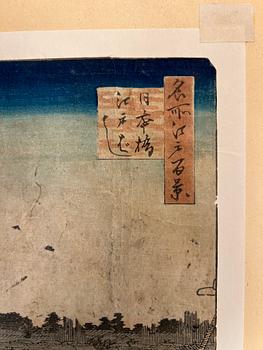 名所江戸百景
日本橋
江戸ばし